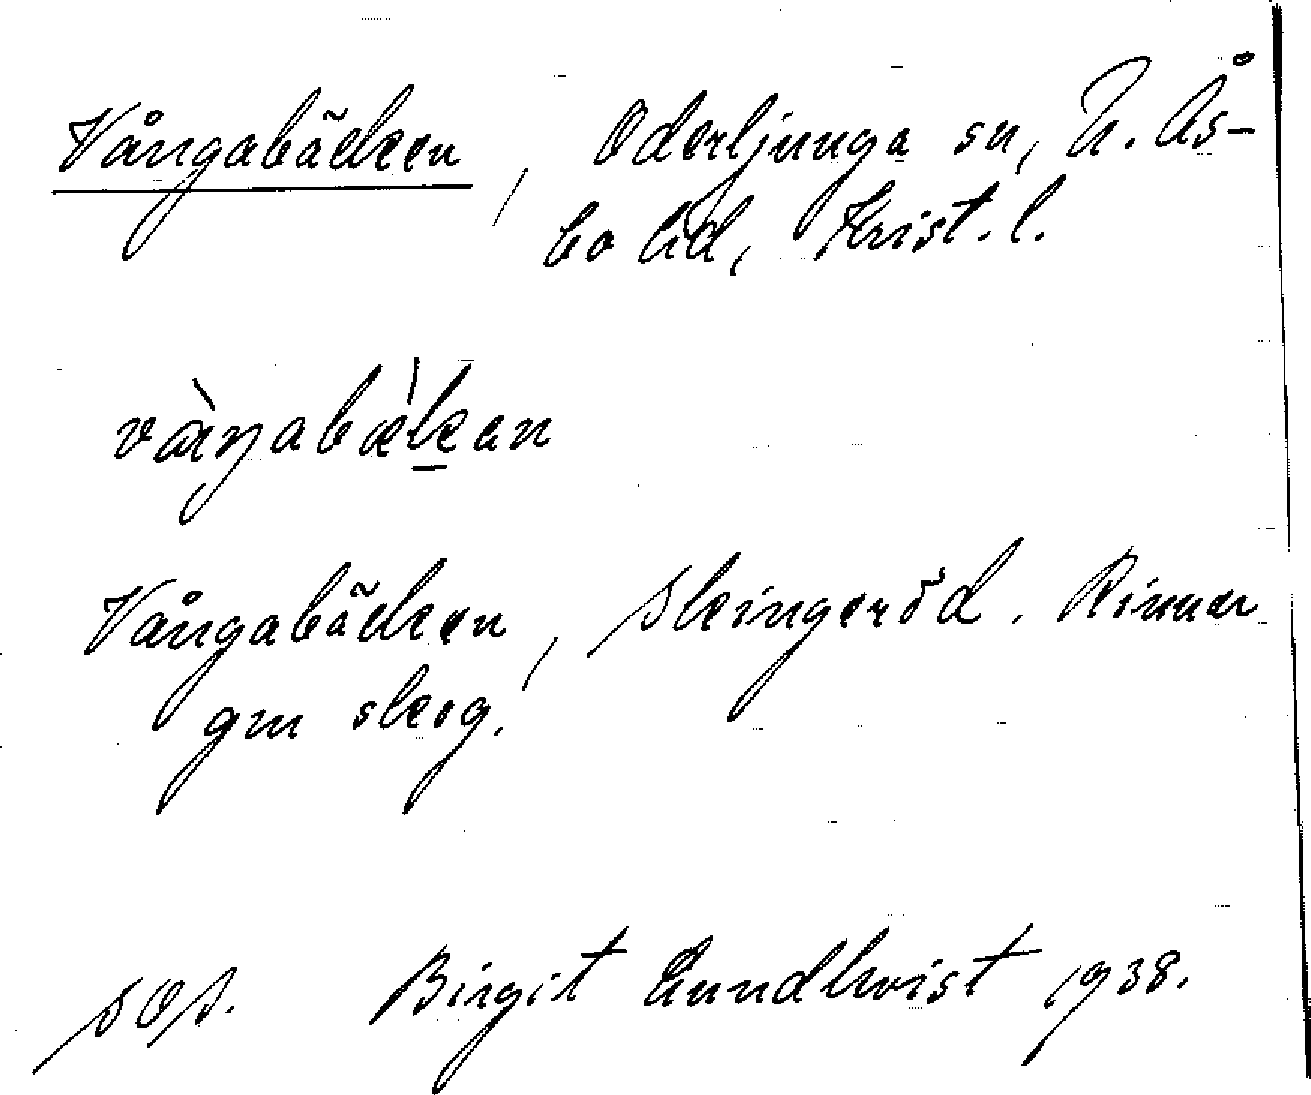 Vångabäcken, Oderljunga sn, N. Ås-
bo hd, Krist. l.
vàŋabæ̀kan
Vångabäcken, Skingeröd. Rinner
gm skog.
SOS. Birgit Lundkvist 1938.